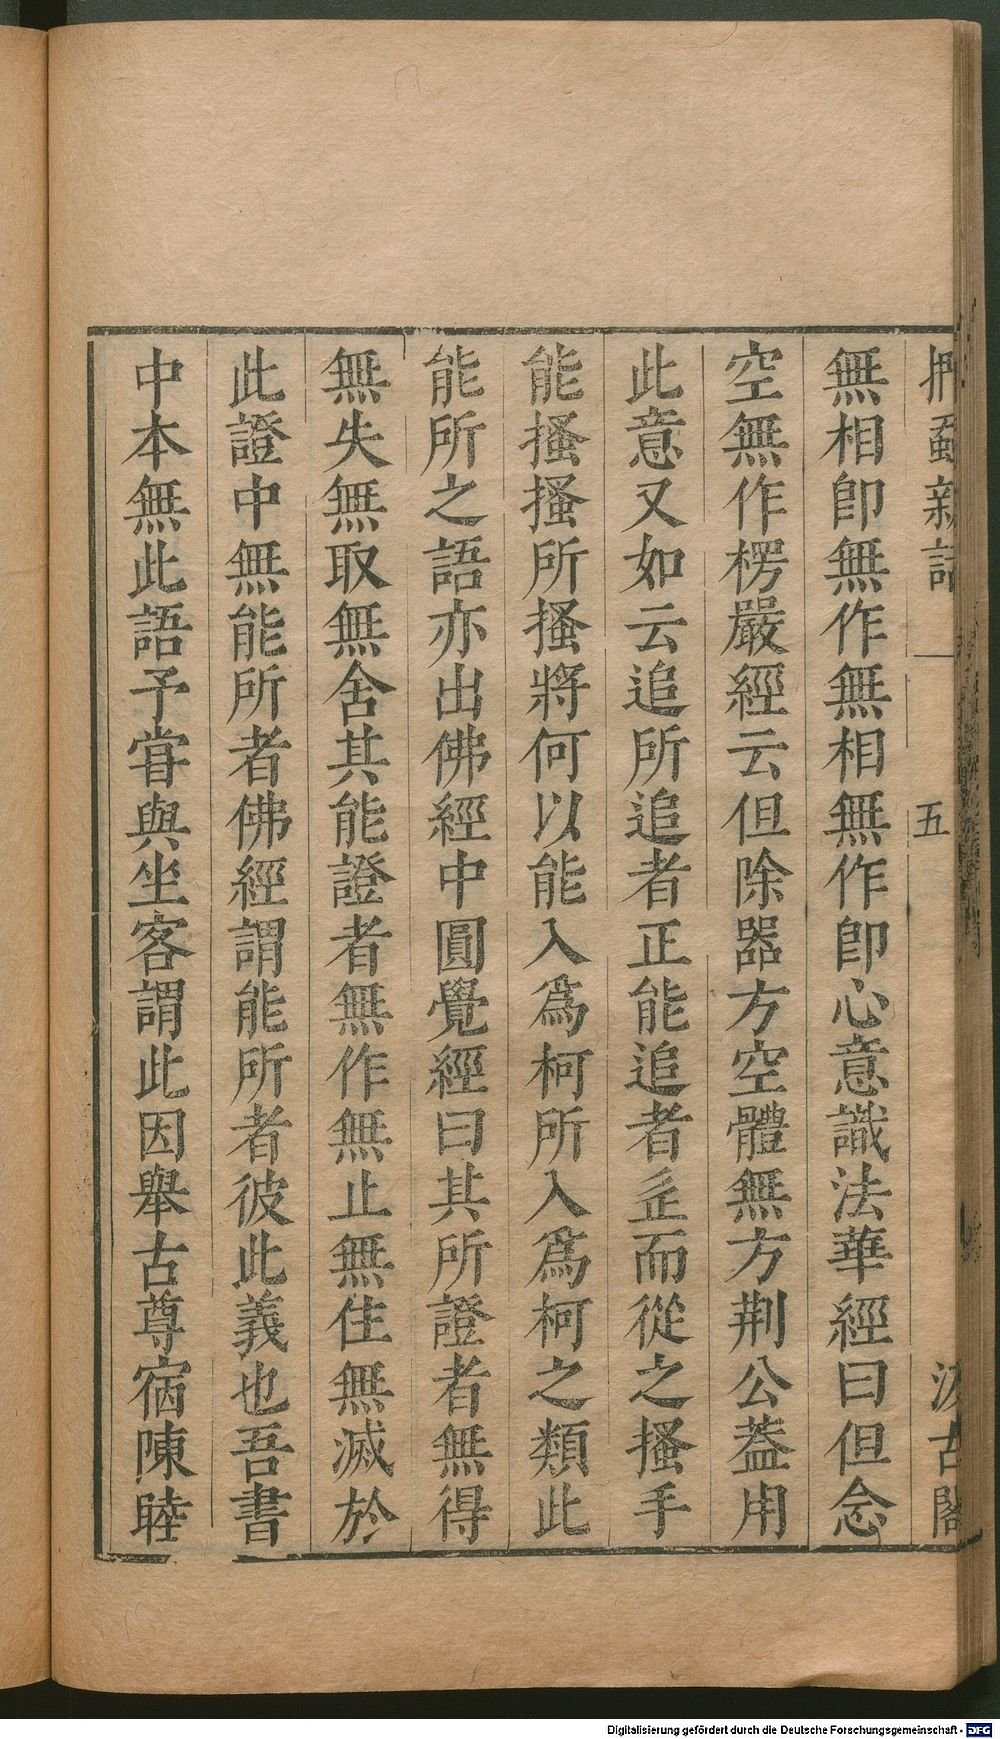 捫蝨新話
一
五
汲古閣
無相卽無作無相無作卽心意識法華經曰但念
空無作楞嚴經云但除器方空體無方荆公葢用
此意又如云追所追者正能追者𤴓而從之搔手
能搔搔所搔將何以能入爲柯所入爲柯之類此
能所之語亦出佛經中圓覺經曰其所證者無得
無失無取無舍其能證者無作無止無住無滅於
此證中無能所者佛經謂能所者彼此義也吾書
中本無此語予甞與坐客謂此因舉古尊宿陳睦
Digitalisierung gefördert durch die Deutsche Forschungsgemeinschaft - DFG